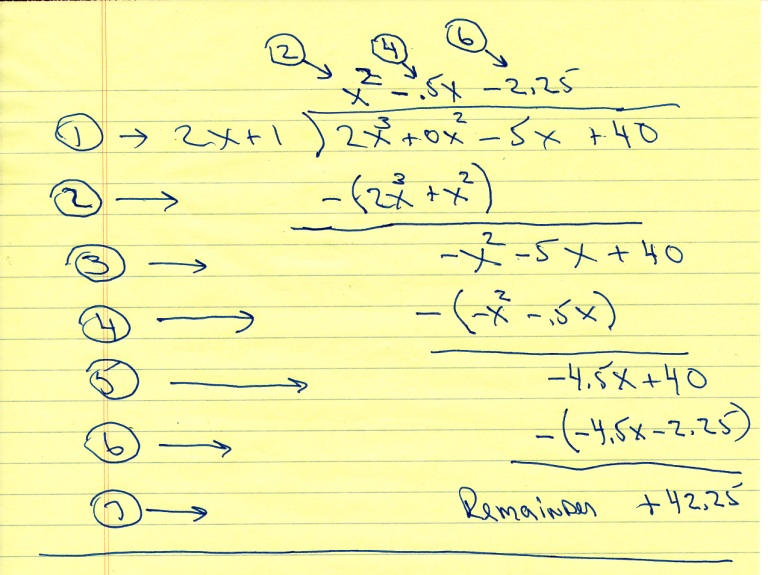 2 4 6
x² - .5x - 2.25
1 → 2x+1 ) 2x³ + 0x² - 5x + 40
2 → -(2x³ + x²)
3 → -x² - 5x + 40
4 → -(-x² - .5x)
5 → -4.5x + 40
6 → -(-4.5x - 2.25)
7 → Remainder +42.25